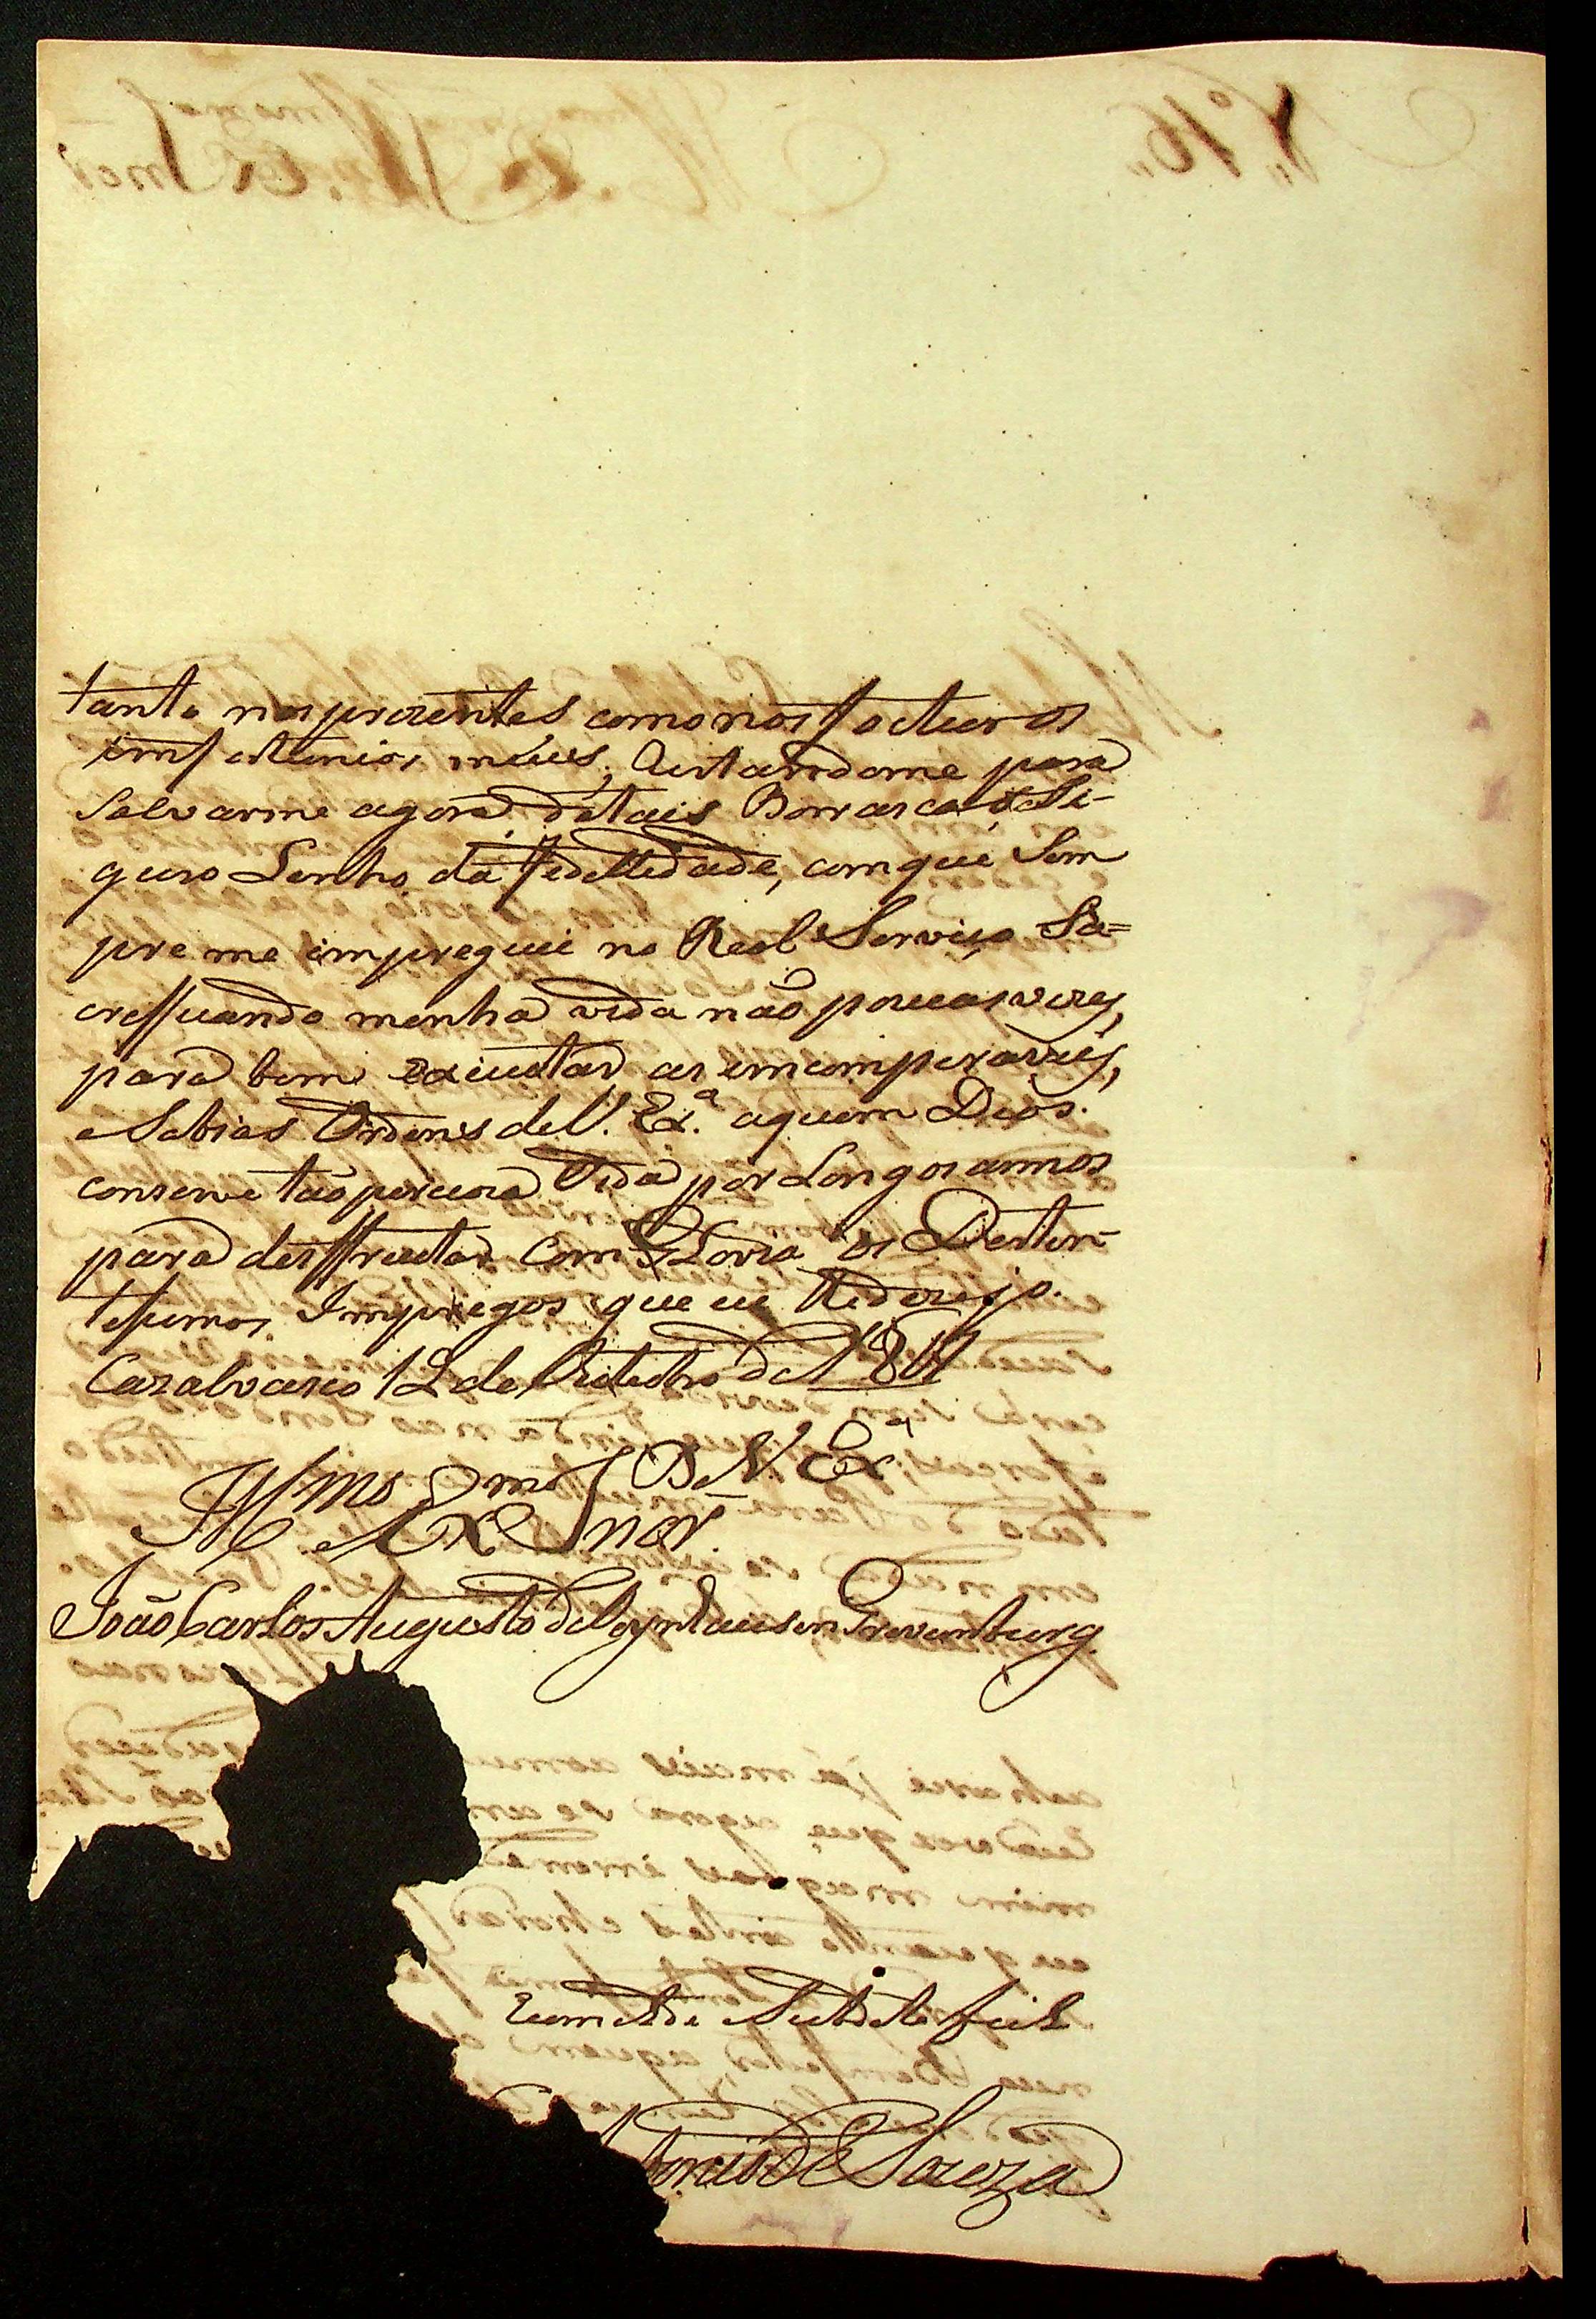 tanto nos prezentes como nos focturos
imfortunios meus; Restandome para
Salvarme agora de tais Borrascas o Si-
guro Lenho da fedellidade, com que Sem
pre me impreguei no Real Serviço Sa=
creficando menha vida não poucas vezes,
para bem exicutar as emcomperaveis,
e Sabias Ordens de V. Ex.ª aquem Deos.
conserve tão pricioza Vida por Longos annos
para desffructar com Gloria os Destin-
tesimos Impregos que eu lhe dezejo.
Cazalvasco 12 de Outubro de 1811
De V. Ex.ª
Ill.mo e Ex.mo Snor.
João Carlos Augusto de Oeynhausen Grevenburg
Eumilde Subdito fiel
tonio de Souza